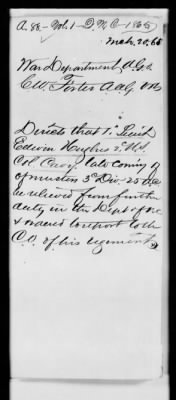 A. 88. Vol. 1 - D. N. C. - 1865
Mch. 20, 65
War Department, A.G.O.
C.W. Foster A.A.G. Vols
Directs that 1" Lieut
Edwin Hughes 2" U.S.
Col. Cavy. late comy
of musters 3" Div. 25 A.C.
be relieved from further
duty in the Dept of N.C.
& ordered to report to the
C.O. of his regiment